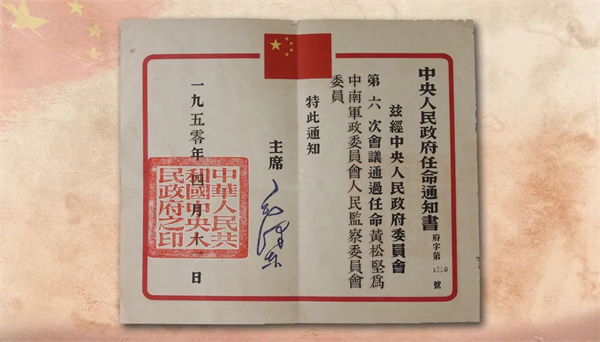 中央人民政府任命通知書 府字第 號
茲經中央人民政府委員會
第六次會議通過任命黃松堅爲
中南軍政委員會人民監察委員會
委員
特此通知
主席 毛澤东
一九五零年四月 日
中華人民共
和國中央人
民政府之印